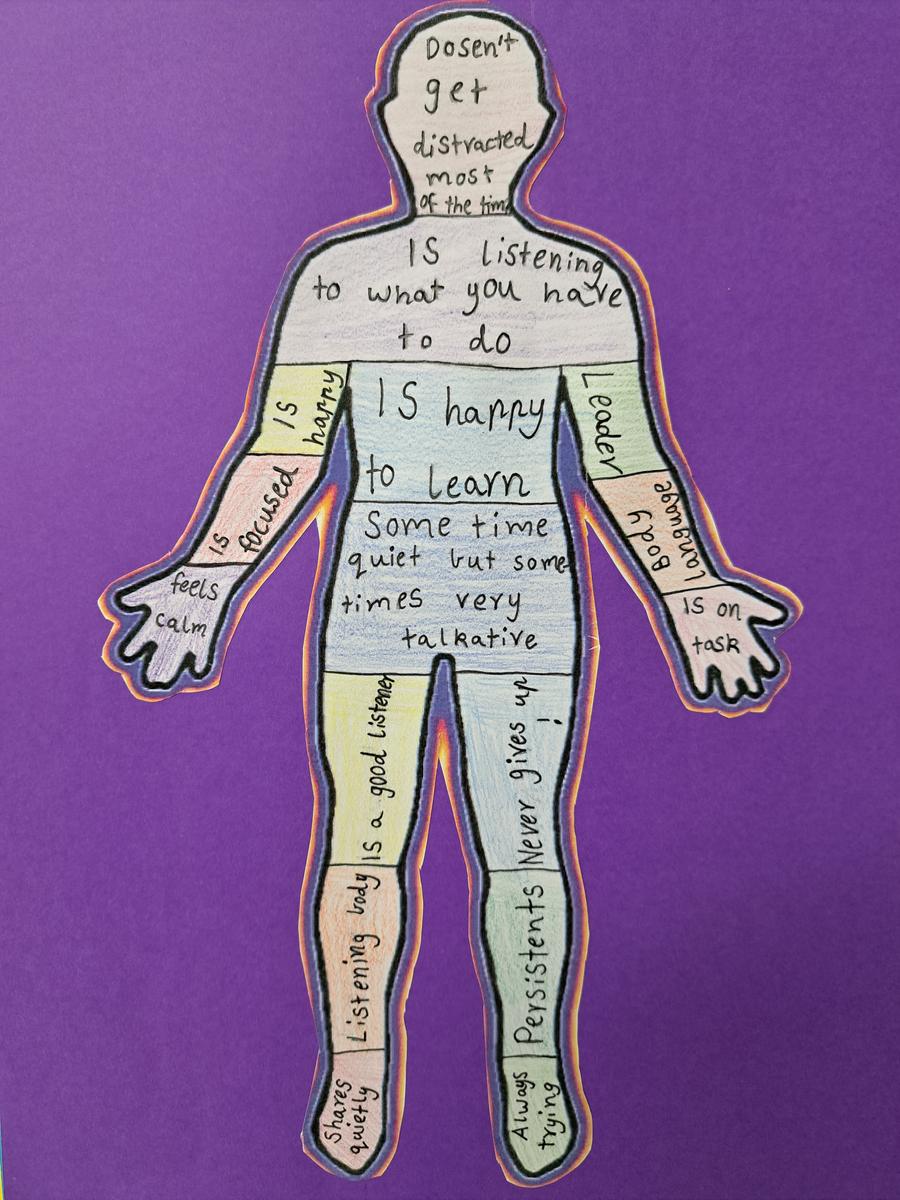 Dosen't
get
distracted
most
of the time
IS listening
to what you have
to do
IS
happy
IS happy
to learn
Leader
IS
focused
Body
language
feels
calm
Some time
quiet but some
times very
talkative
IS on
task
IS a good listener
Never gives up!
Listening body
Persistents
Shares
quietly
Always
trying